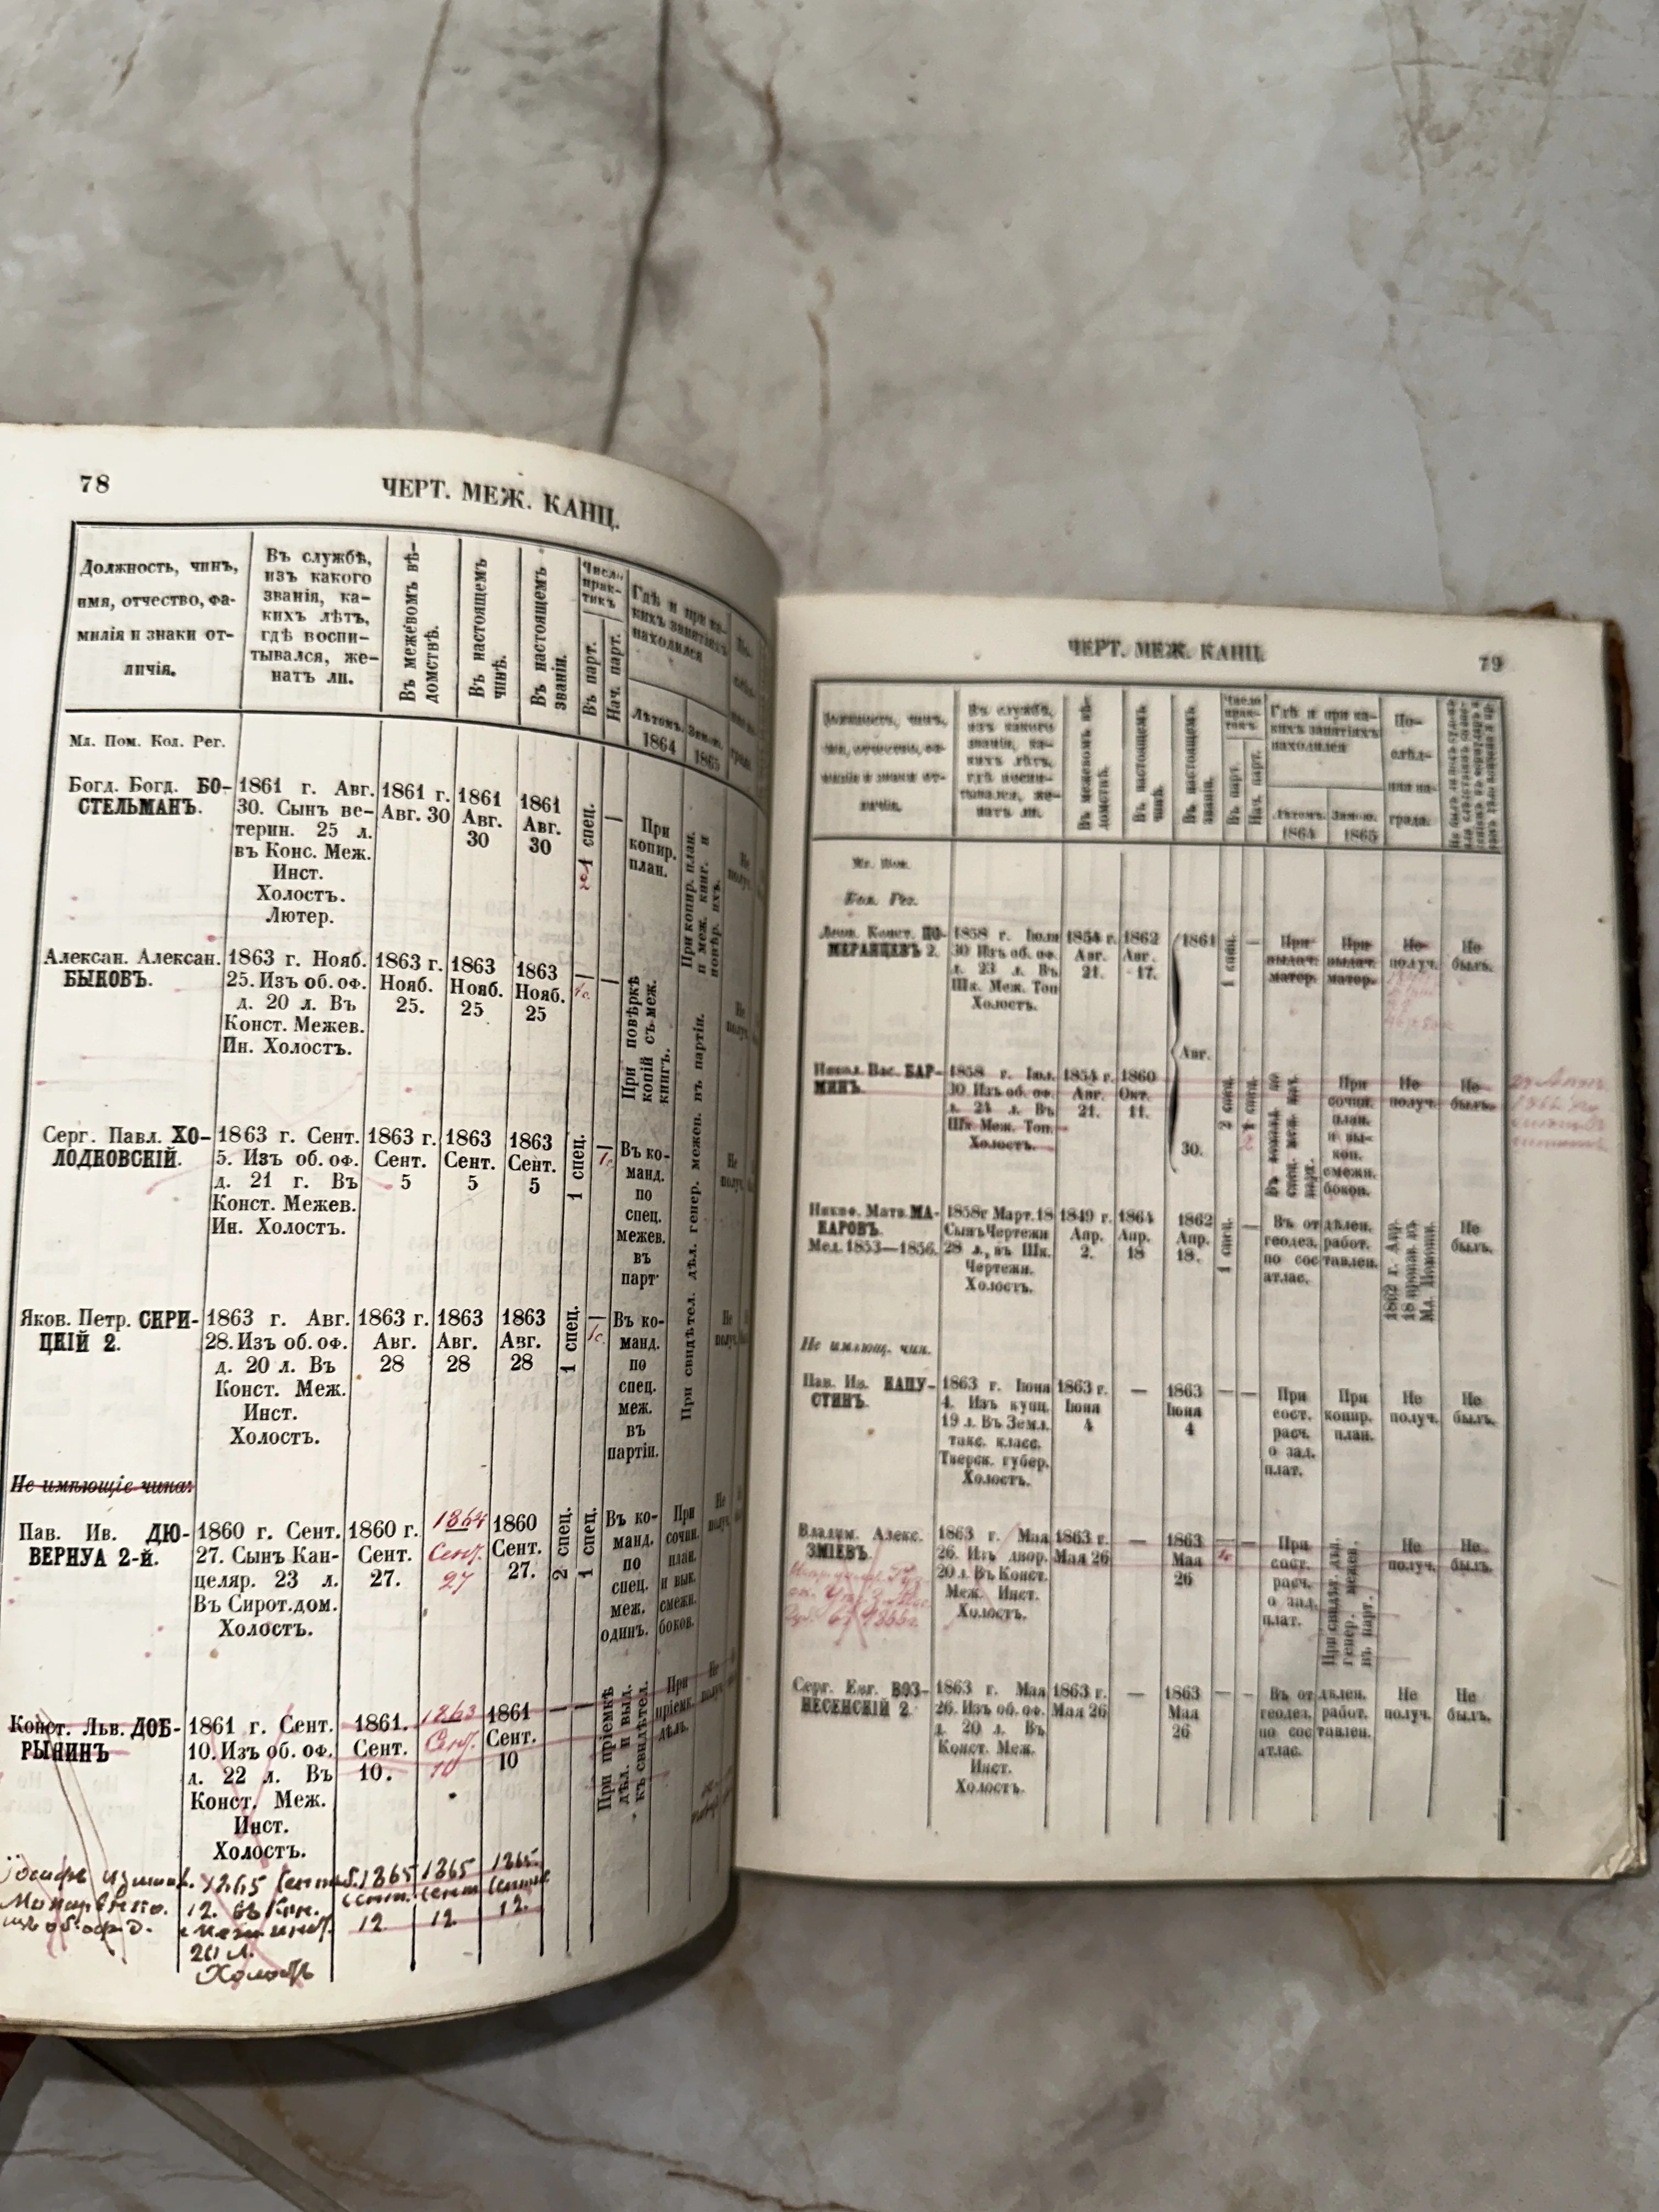 78
ЧЕРТ. МЕЖ. КАНЦ.
Должность, чинъ,
имя, отчество, фа-
милія и знаки от-
личія.
Въ службѣ,
изъ какого
званія, ка-
кихъ лѣтъ,
гдѣ воспи-
тывался, же-
натъ ли.
Въ межевомъ вѣ-
домствѣ.
Въ настоящемъ
чинѣ.
Въ настоящемъ
званіи.
Число
прак-
тикъ
Въ парт.
Нач. парт.
Гдѣ и при ка-
кихъ занятіяхъ
находился
Лѣтомъ.
1864
Зимою.
1865
Мл. Пом. Кол. Рег.
Богд. Богд. БО-
СТЕЛЬМАНЪ.
1861 г. Авг.
30. Сынъ ве-
терин. 25 л.
въ Конс. Меж.
Инст.
Холостъ.
Лютер.
1861 г.
Авг. 30
1861
Авг.
30
1861
Авг.
30
1 спец.
—
При
копир.
план.
При копир. план.
и меж. книг. и
повѣр. ихъ.
Не
получ.
Алексан. Алексан.
БЫКОВЪ.
1863 г. Нояб.
25. Изъ об. оф.
д. 20 л. Въ
Конст. Межев.
Ин. Холостъ.
1863 г.
Нояб.
25.
1863
Нояб.
25
1863
Нояб.
25
—
—
При повѣркѣ
копій съ меж.
книгъ.
При свидѣтел. дѣл. генер. межев. въ партіи.
Не
получ.
Серг. Павл. ХО-
ЛОДКОВСКІЙ.
1863 г. Сент.
5. Изъ об. оф.
д. 21 г. Въ
Конст. Межев.
Ин. Холостъ.
1863 г.
Сент.
5
1863
Сент.
5
1863
Сент.
5
1 спец.
—
Въ ко-
манд.
по
спец.
межев.
въ
парт.
Не
получ.
Яков. Петр. СКРИ-
ЦКІЙ 2.
1863 г. Авг.
28. Изъ об. оф.
д. 20 л. Въ
Конст. Меж.
Инст.
Холостъ.
1863 г.
Авг.
28
1863
Авг.
28
1863
Авг.
28
1 спец.
—
Въ ко-
манд.
по
спец.
меж.
въ
партіи.
Не
получ.
Не имѣющіе чина:
Пав. Ив. ДЮ-
ВЕРНУА 2-й.
1860 г. Сент.
27. Сынъ Кан-
целяр. 23 л.
Въ Сирот. дом.
Холостъ.
1860 г.
Сент.
27.
1864
Сент.
27
1860
Сент.
27.
2 спец.
1 спец.
Въ ко-
манд.
по
спец.
меж.
одинъ.
При
сочин.
план.
и вык.
смежн.
боков.
Не
получ.
Конст. Льв. ДОБ-
РЫНИНЪ
1861 г. Сент.
10. Изъ об. оф.
д. 22 л. Въ
Конст. Меж.
Инст.
Холостъ.
1861.
Сент.
10.
1863
Сент.
10
1861
Сент.
10
—
—
При пріемкѣ
дѣл. и выд.
къ свидѣтел.
При
пріемк.
дѣлъ.
Не
получ.
12.
20 л.
Холостъ
1865
12
1865
12
1865
12.
ЧЕРТ. МЕЖ. КАНЦ.
79
Должность, чинъ,
имя, отчество, фа-
милія и знаки от-
личія.
Въ службѣ,
изъ какого
званія, ка-
кихъ лѣтъ,
гдѣ воспи-
тывался, же-
натъ ли.
Въ межевомъ вѣ-
домствѣ.
Въ настоящемъ
чинѣ.
Въ настоящемъ
званіи.
Число
прак-
тикъ
Въ парт.
Нач. парт.
Гдѣ и при ка-
кихъ занятіяхъ
находился
Лѣтомъ.
1864
Зимою.
1865
По-
слѣд-
няя на-
града.
Мл. Пом.
Кол. Рег.
Конст. ПО-
МЕРАНЦЕВЪ 2.
1858 г. Іюля
30 Изъ об. оф.
д. 23 л. Въ
Шк. Меж. Топ
Холостъ.
1854 г.
Авг.
21.
1862
Авг.
17.
1861
Авг.
30.
1 спец.
—
При
выдач.
матер.
При
выдач.
матер.
Не
получ.
Не
былъ.
Никол. Вас. БАР-
МИНЪ.
1858 г. Іюл.
30. Изъ об. оф.
д. 24 л. Въ
Шк. Меж. Топ.
Холостъ.
1854 г.
Авг.
21.
1860
Окт.
11.
2 спец.
1 спец.
При
сочин.
план.
и вы-
коп.
смежн.
боков.
Не
получ.
Не
былъ.
Никиф. Матв. МА-
КАРОВЪ.
Мед. 1853—1856.
1858г Март. 18
Сынъ Чертежн
28 л., въ Шк.
Чертежн.
Холостъ.
1849 г.
Апр.
2.
1864
Апр.
18
1862
Апр.
18.
1 спец.
—
Въ отдѣлен.
геодез. работ.
по составлен.
атлас.
1862 г. Апр.
18 произв. въ
Мл. Помощн.
Не
былъ.
Не имѣющ. чин.
Пав. Ив. КАПУ-
СТИНЪ.
1863 г. Іюня
4. Изъ купц.
19 л. Въ Земл.
такс. класс.
Тверск. губер.
Холостъ.
1863 г.
Іюня
4
—
1863
Іюня
4
—
—
При
сост.
расч.
о зад.
плат.
При
копир.
план.
Не
получ.
Не
былъ.
Владим. Алекс.
ЗМІЕВЪ.
1863 г. Мая
26. Изъ двор.
20 л. Въ Конст.
Меж. Инст.
Холостъ.
1863 г.
Мая 26
—
1863
Мая
26
—
—
При
сост.
расч.
о зад.
плат.
При свидѣт. дѣл.
генер. межев.
въ парт.
Не
получ.
Не
былъ.
Серг. Евг. ВОЗ-
НЕСЕНСКІЙ 2.
1863 г. Мая
26. Изъ об. оф.
д. 20 л. Въ
Конст. Меж.
Инст.
Холостъ.
1863 г.
Мая 26
—
1863
Мая
26
—
—
Въ отдѣлен.
геодез. работ.
по составлен.
атлас.
Не
получ.
Не
былъ.